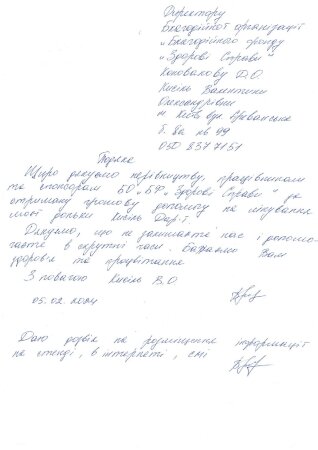 Директору
Благодійної організації
„Благодійного фонду
„Здорові Справи"
Коновалову Д.О.
Кисіль Валентини
Олександрівни
м. Київ вул Ереванська
б. 8а кв 49
050 857 7151
Подяка
Щиро дякуємо керівництву, працівникам
та спонсорам БО „БФ „Здорові Справи" за
отриману грошову допомогу на лікування
моєї доньки Кисіль Дар'ї.
Дякуємо, що не залишаєте нас і допома-
гаєте в скрутні часи. Бажаємо Вам
здоров'я та процвітання.
З повагою Кисіль В.О.
05.02.2024
Даю дозвіл на розміщення інформації
на стенді, в інтернеті, змі